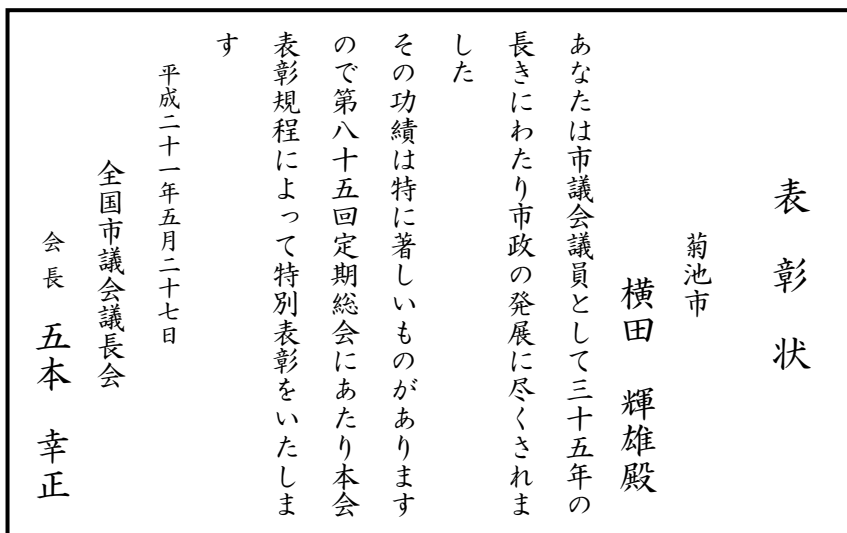 表彰状
菊池市
横田 輝雄殿
あなたは市議会議員として三十五年の
長きにわたり市政の発展に尽くされま
した
その功績は特に著しいものがあります
ので第八十五回定期総会にあたり本会
表彰規程によって特別表彰をいたしま
す
平成二十一年五月二十七日
全国市議会議長会
会長 五本 幸正